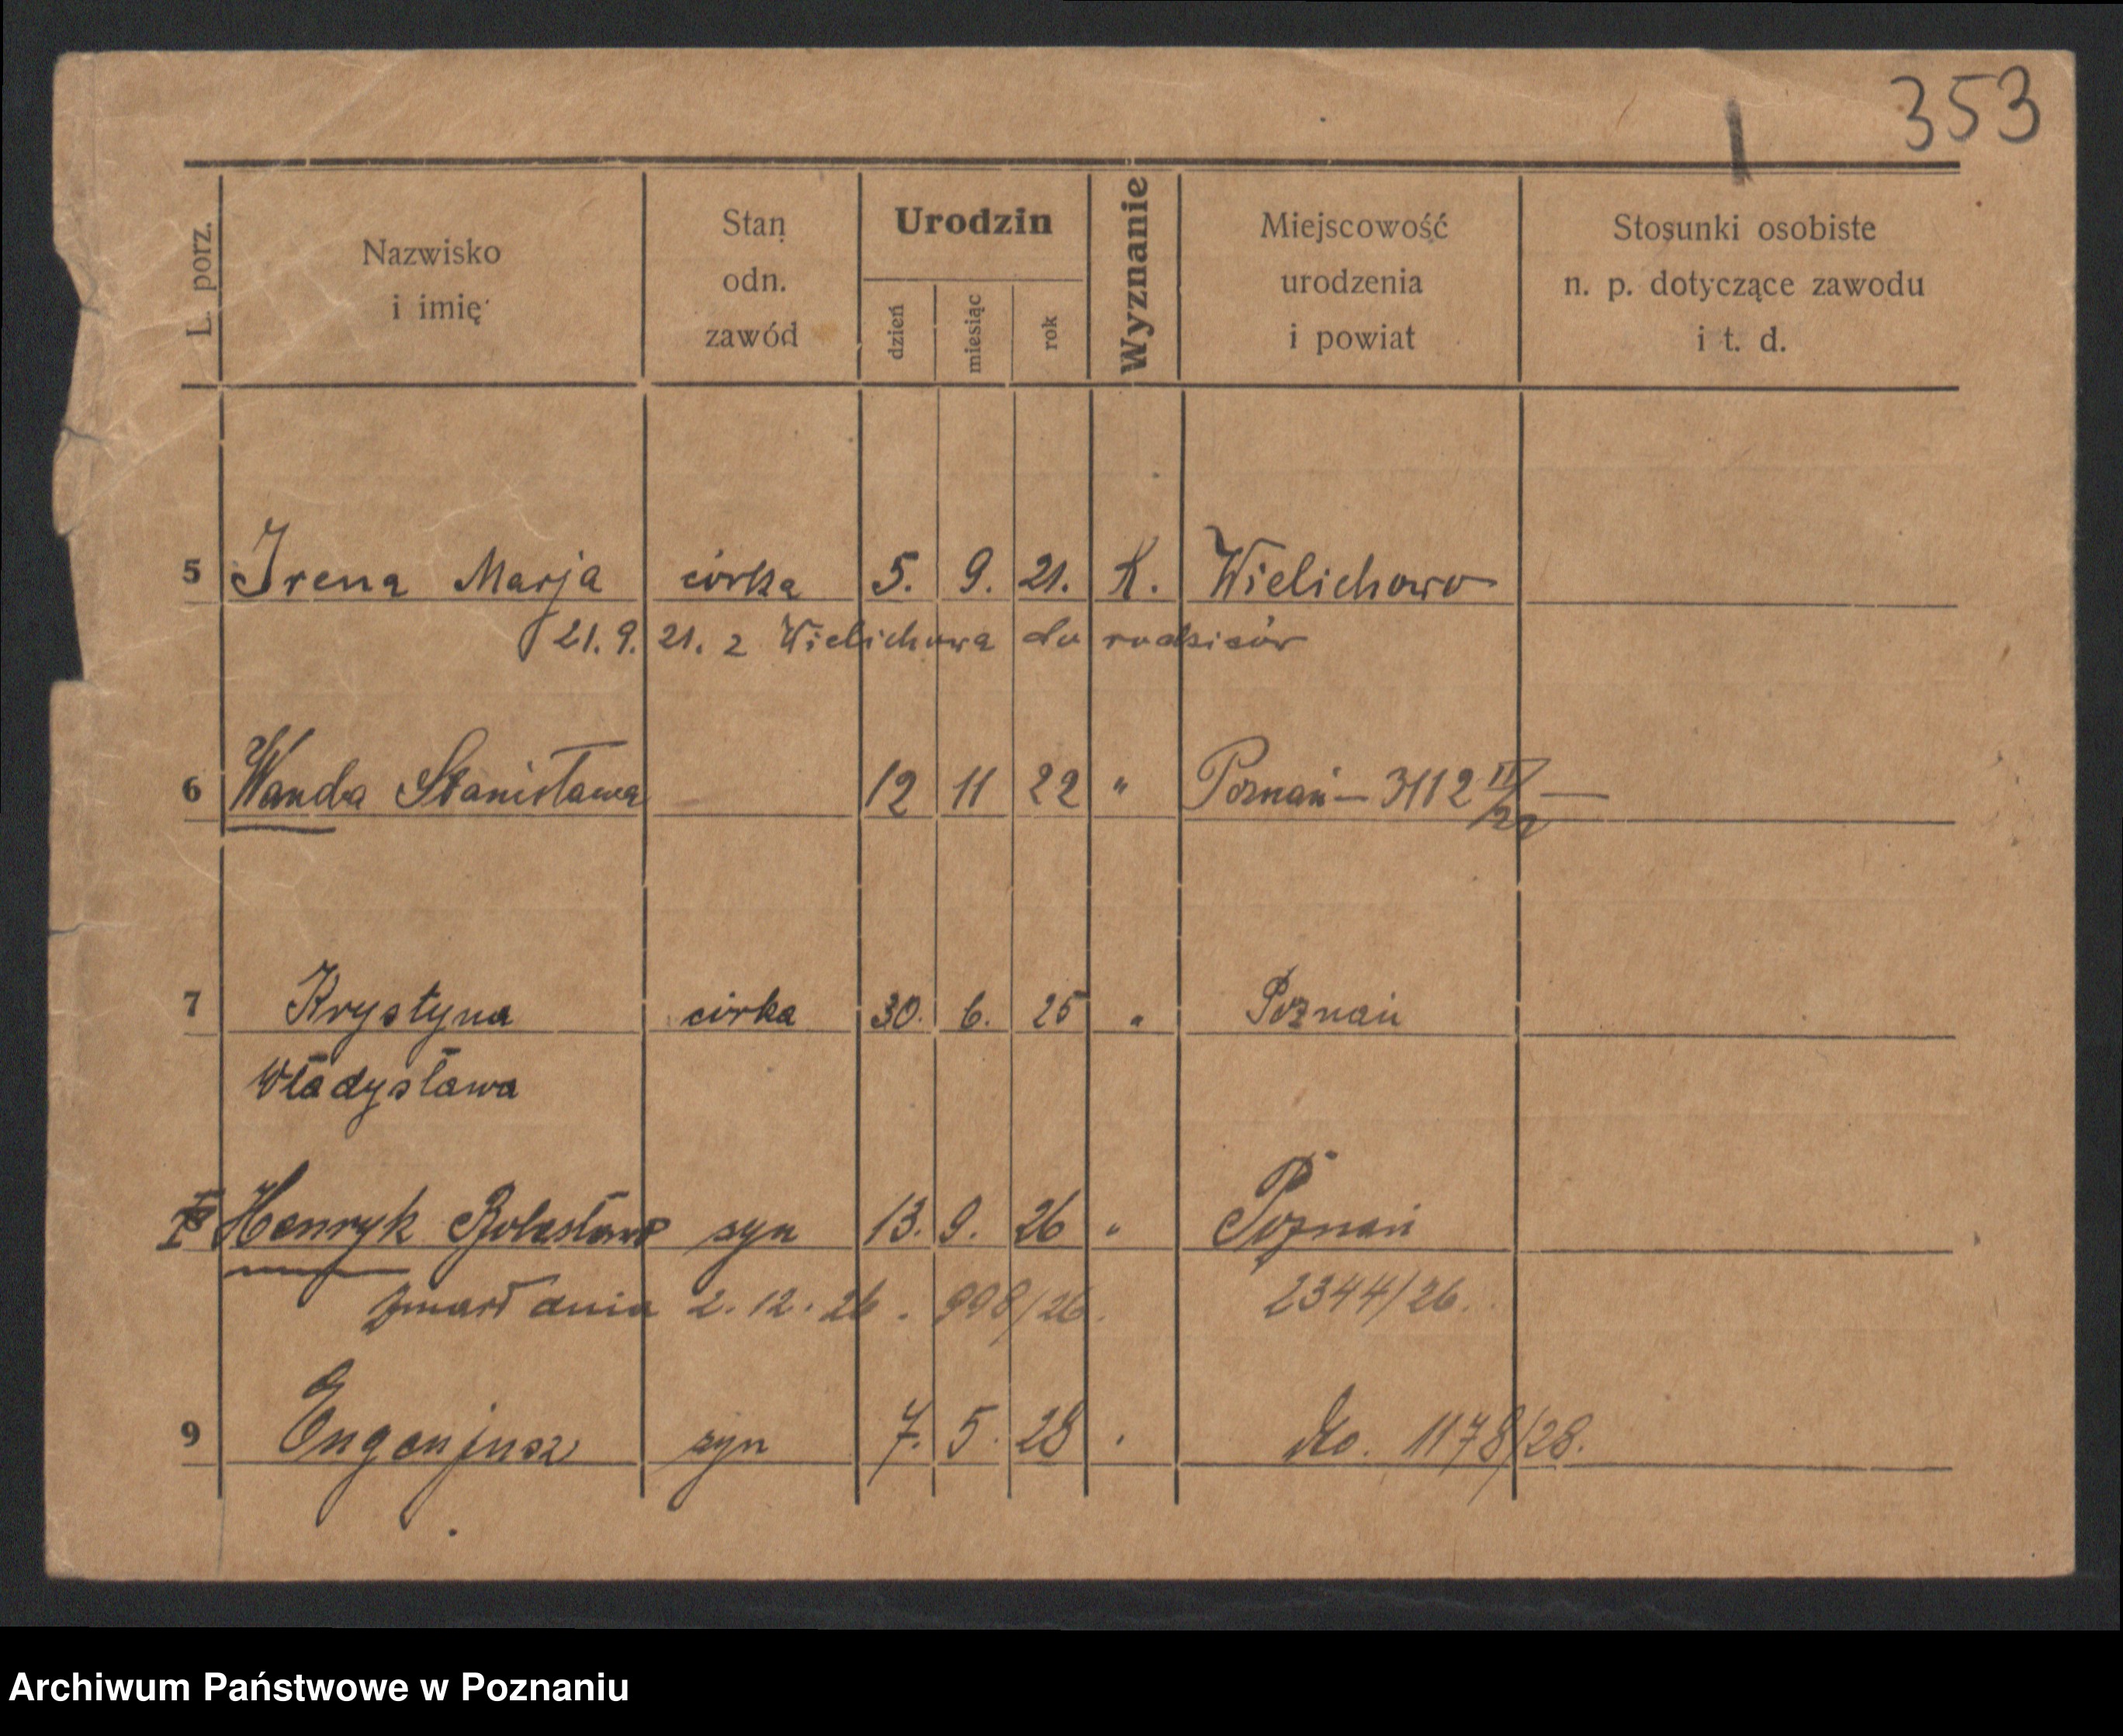 353
L. porz.
Nazwisko
i imię
Stan
odn.
zawód
Urodzin
dzień
miesiąc
rok
Wyznanie
Miejscowość
urodzenia
i powiat
Stosunki osobiste
n. p. dotyczące zawodu
i t. d.
5 Irena Marja córka 5. 9. 21. K. Wielichowo
21. 9. 21. z Wielichowa do rodziców
6 Wanda Stanisława 12 11 22 " Poznań — 3112 IV/22 —
7 Krystyna córka 30. 6. 25 " Poznań
Władysława
Henryk Bolesław syn 13. 9. 26 " Poznań
zmarł dnia 2. 12. 26. 998/26. 2344/26.
9 Eugenjusz syn 7. 5. 28 " 1178/28.
Archiwum Państwowe w Poznaniu